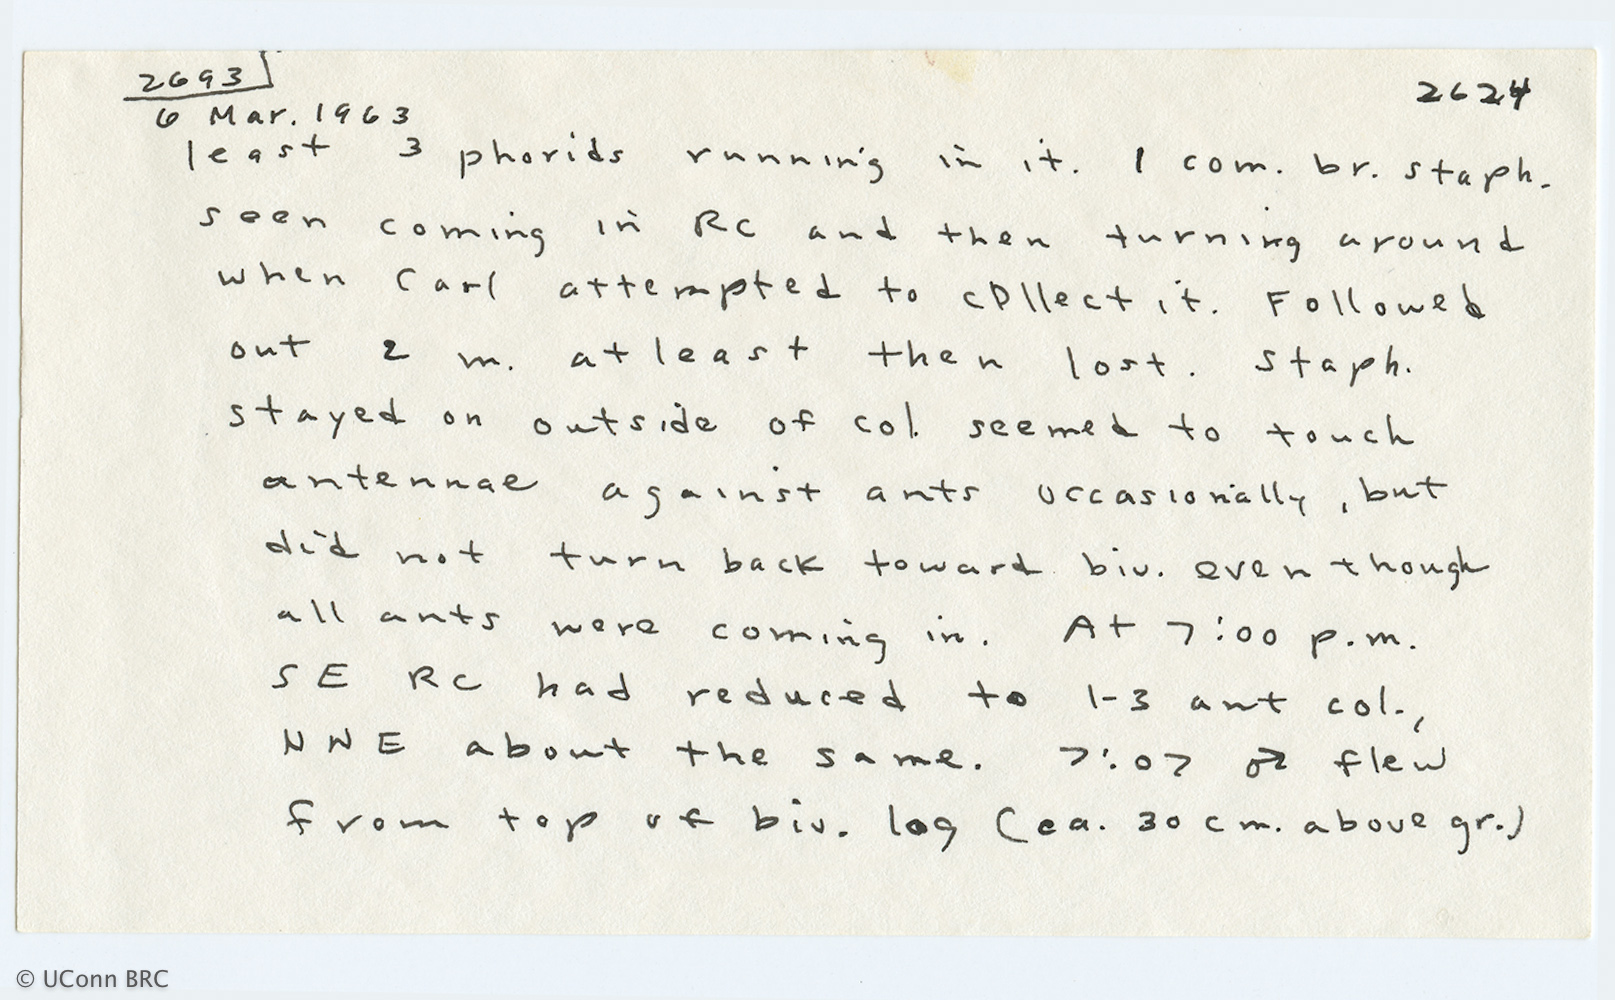 2693
2624
6 Mar. 1963
least 3 phorids running in it. 1 com. br. staph.
seen coming in RC and then turning around
when Carl attempted to collect it. Followed
out 2 m. at least then lost. Staph.
stayed on outside of col. seemed to touch
antennae against ants occasionally, but
did not turn back toward biv. even though
all ants were coming in. At 7:00 p.m.
SE RC had reduced to 1-3 ant col.,
NNE about the same. 7:07 ♂ flew
from top of biv. log (ca. 30 cm. above gr.)
© UConn BRC